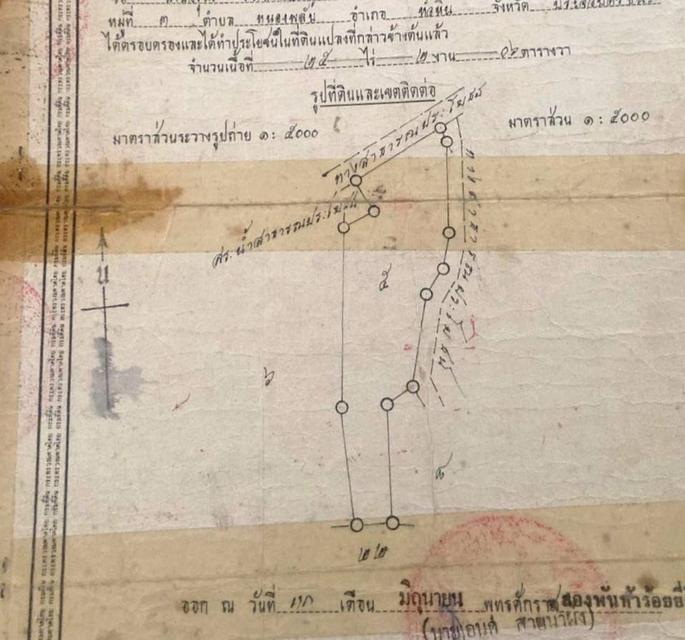 หมู่ที่ ๓ ตำบล หนองพลับ อำเภอ หัวหิน จังหวัด
ได้ครอบครองและได้ทำประโยชน์ในที่ดินแปลงที่กล่าวข้างต้นแล้ว
จำนวนเนื้อที่ ๒๕ ไร่ ๒ งาน ตารางวา
รูปที่ดินและเขตติดต่อ
มาตราส่วนระวางรูปถ่าย ๑ : ๕๐๐๐
มาตราส่วน ๑ : ๕๐๐๐
ทางสาธารณประโยชน์
ทางสาธารณประโยชน์
สระน้ำสาธารณประโยชน์
น
๕
๖
๘
๒๒
ออก ณ วันที่ เดือน มิถุนายน พุทธศักราช สองพันห้าร้อยยี่